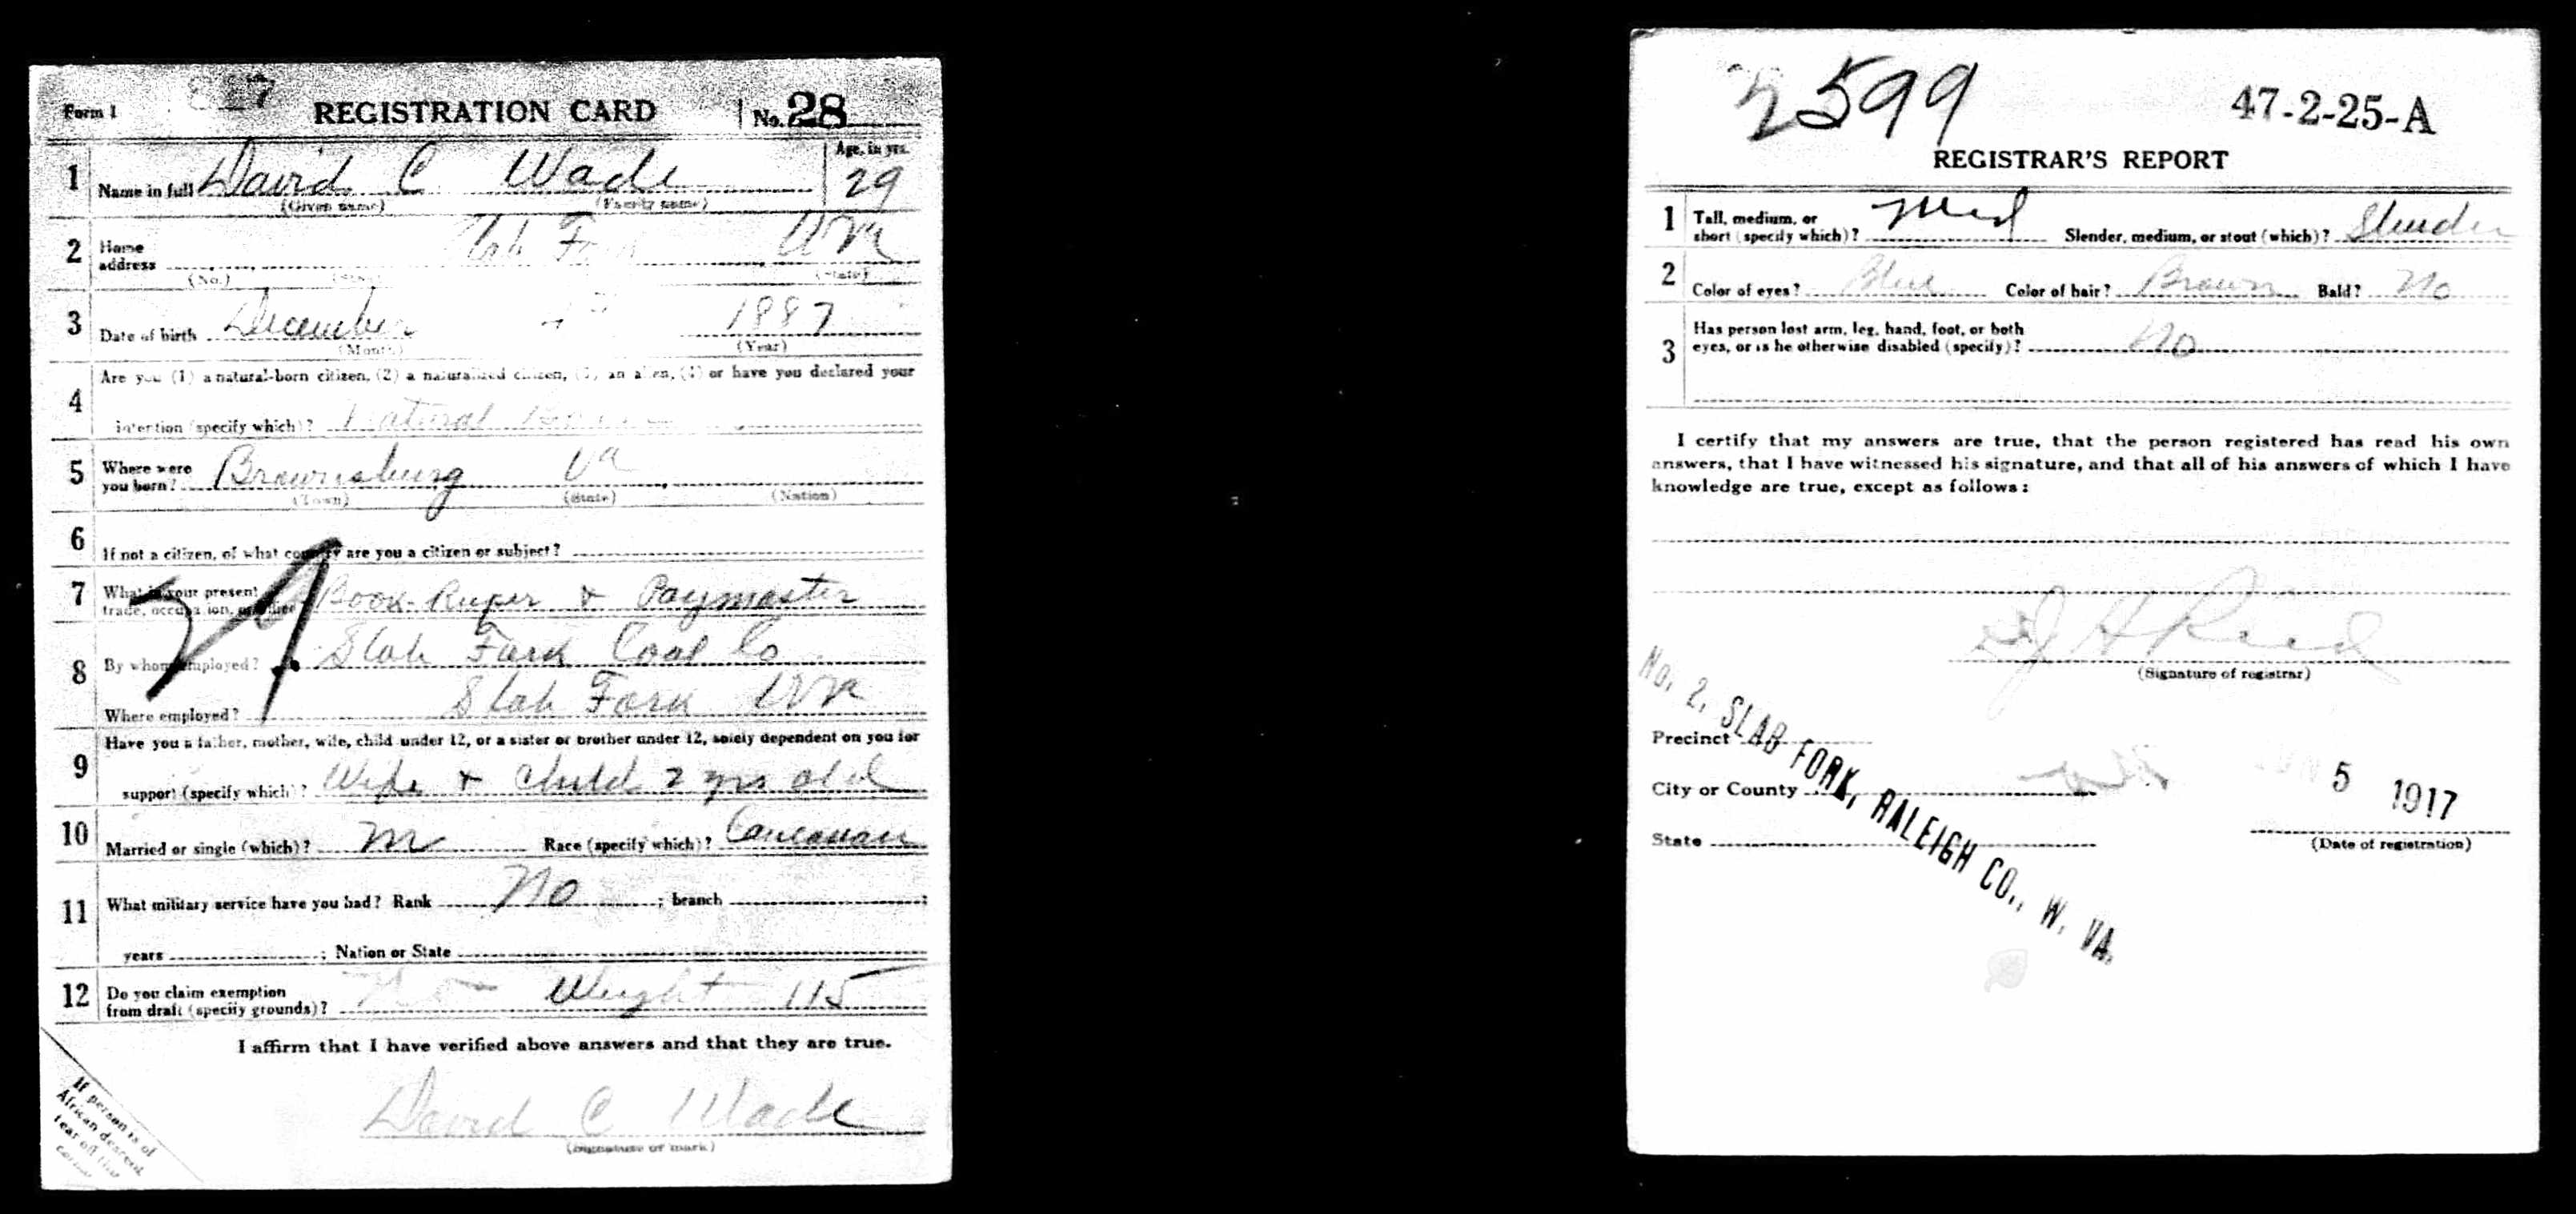 Form 1
REGISTRATION CARD
No. 28
1 Name in full David C Wade
(Given name) (Family name)
Age, in yrs.
29
2 Home address Slab Fork W Va
(No.) (State)
3 Date of birth December 1887
(Month) (Year)
4 Are you (1) a natural-born citizen, (2) a naturalized citizen, (3) an alien, (4) or have you declared your
intention (specify which)? Natural Born
5 Where were you born? Brownsburg Va
(Town) (State) (Nation)
6 If not a citizen, of what country are you a citizen or subject?
7 What is your present trade, occupation, or office? Book-Keeper & Paymaster
8 By whom employed? Slab Fork Coal Co
Where employed? Slab Fork W Va
9 Have you a father, mother, wife, child under 12, or a sister or brother under 12, solely dependent on you for
support (specify which)? Wife & Child 2 yrs old
10 Married or single (which)? M Race (specify which)? Caucasian
11 What military service have you had? Rank No ; branch ;
years ; Nation or State
12 Do you claim exemption from draft (specify grounds)? Weight 115
I affirm that I have verified above answers and that they are true.
David C Wade
(Signature or mark)
If person is of
African descent
tear off this
corner
2599
47-2-25-A
REGISTRAR'S REPORT
1 Tall, medium, or short (specify which)? Med Slender, medium, or stout (which)? Slender
2 Color of eyes? Blue Color of hair? Brown Bald? No
3 Has person lost arm, leg, hand, foot, or both
eyes, or is he otherwise disabled (specify)? No
I certify that my answers are true, that the person registered has read his own
answers, that I have witnessed his signature, and that all of his answers of which I have
knowledge are true, except as follows:
(Signature of registrar)
No. 2, SLAB FORK, RALEIGH CO., W. VA.
Precinct
City or County
State
5 1917
(Date of registration)